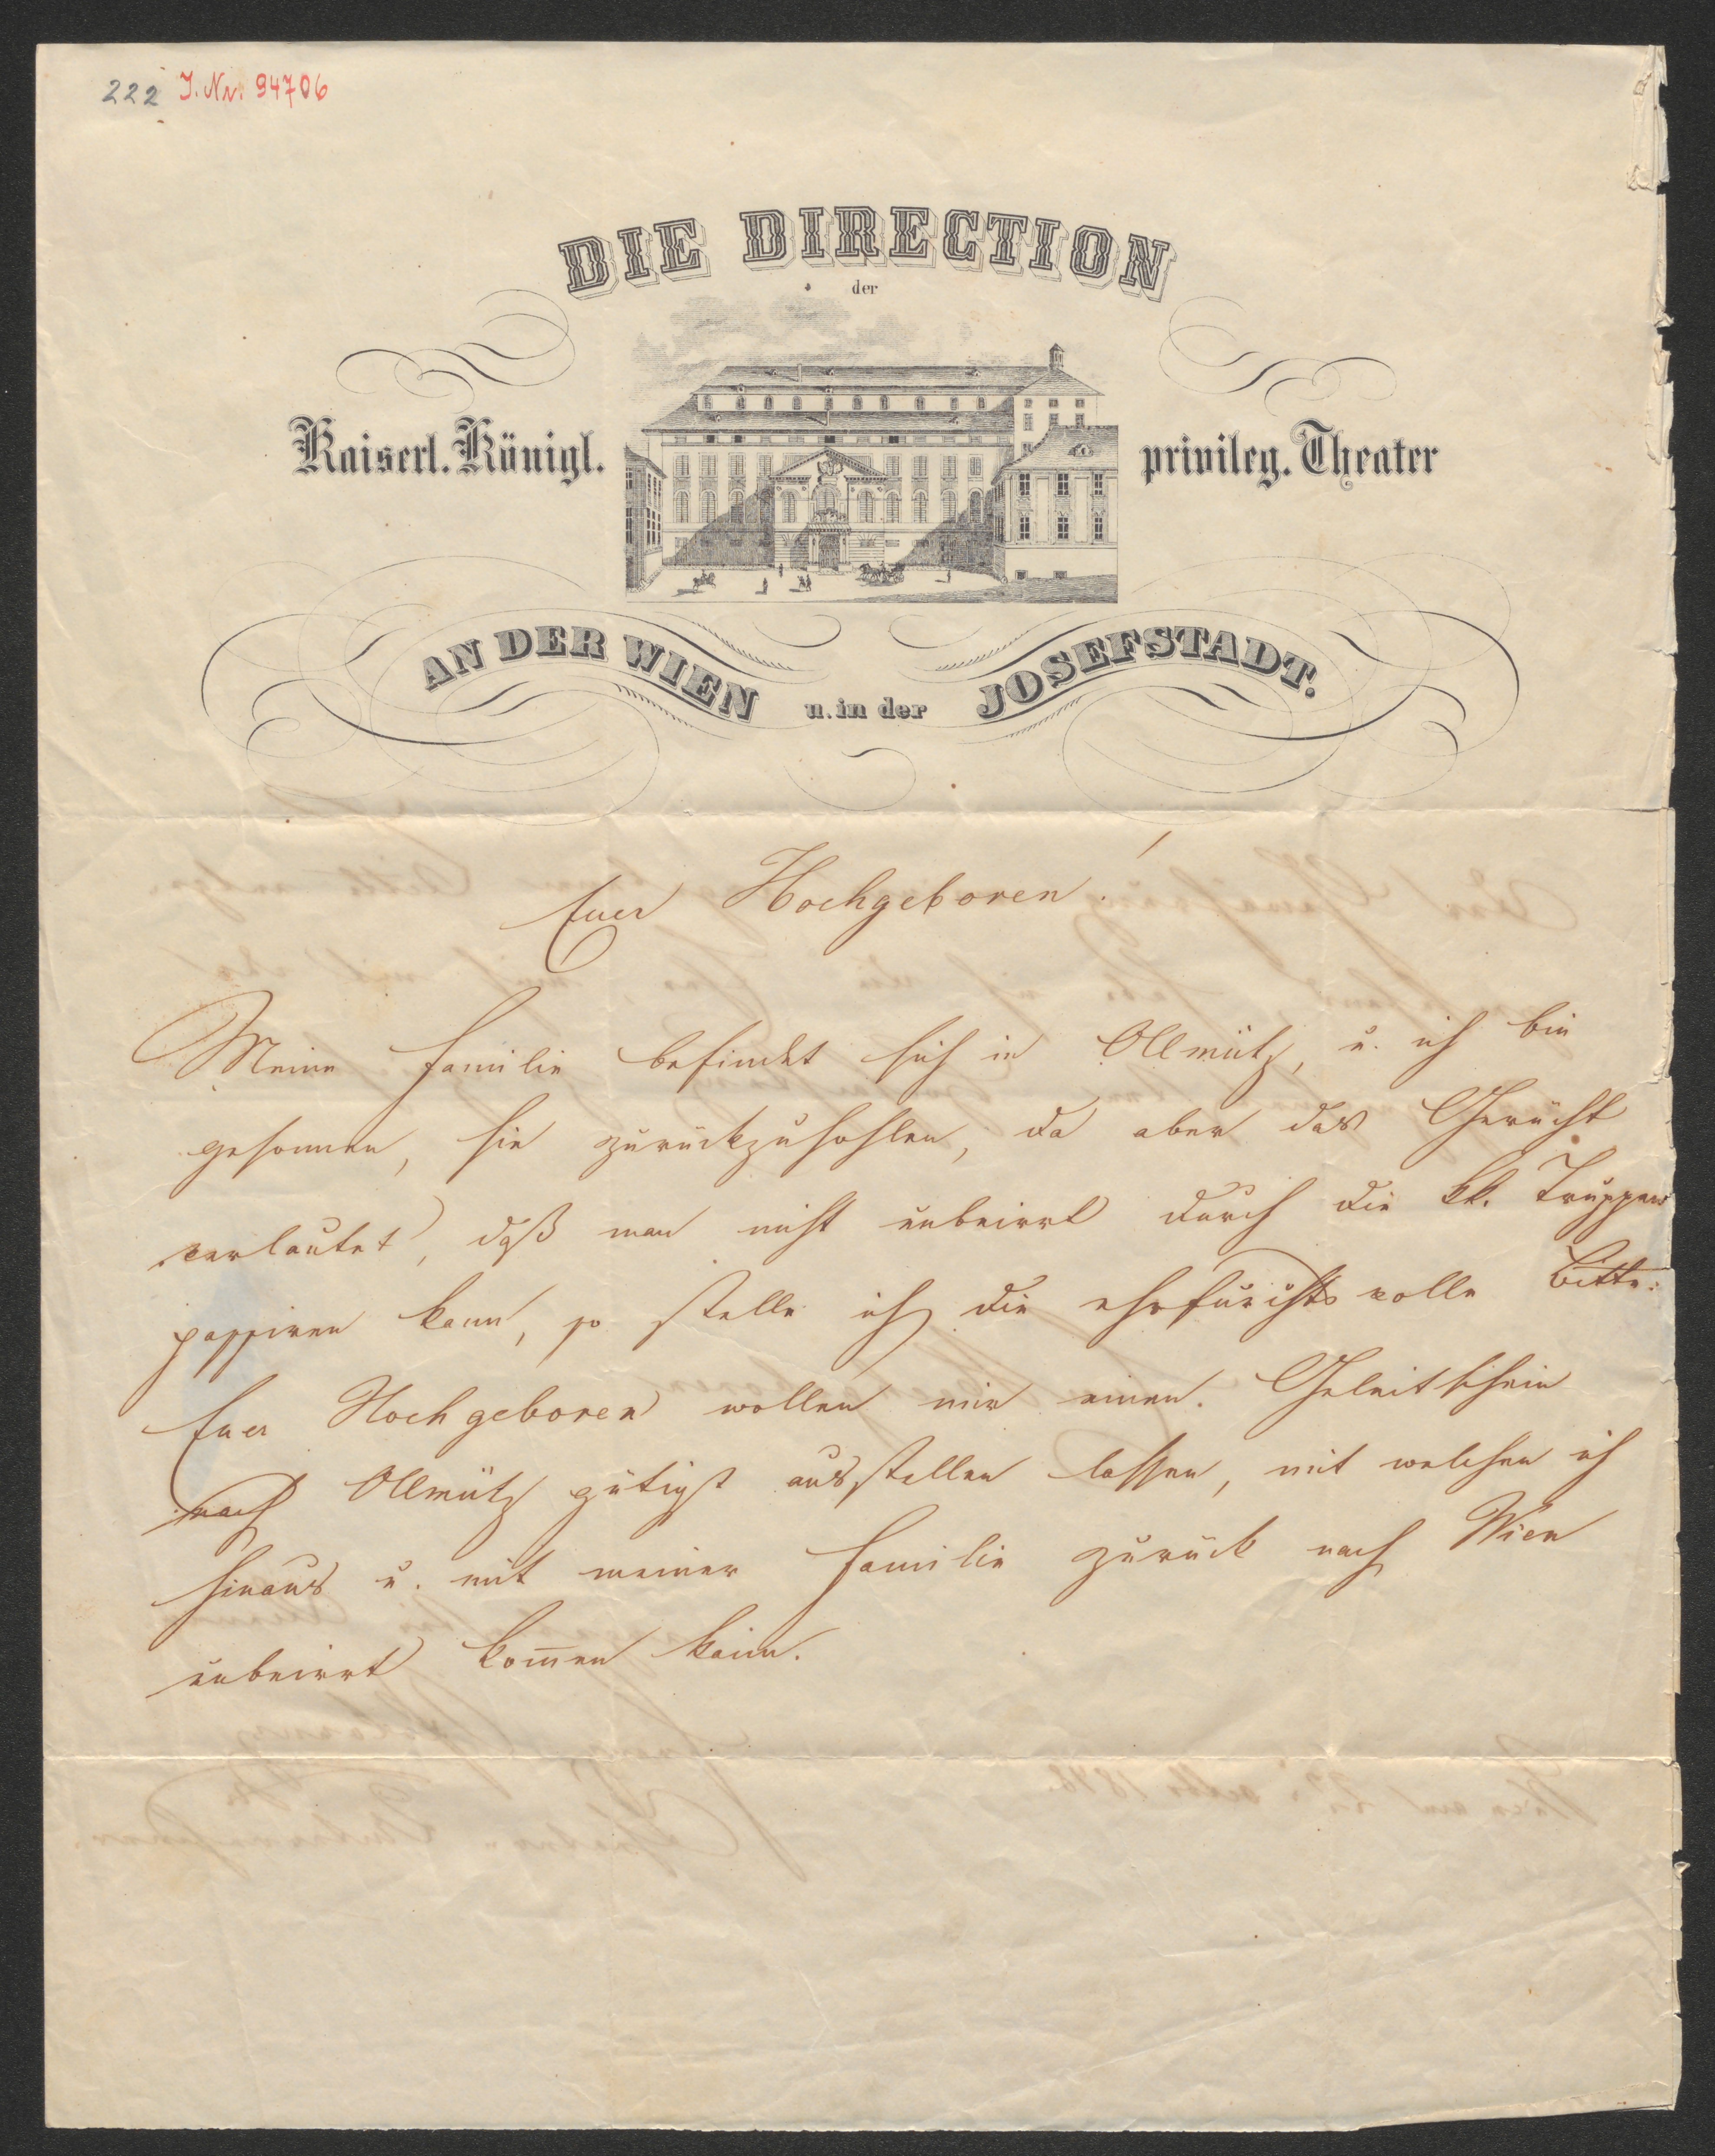 222 I. Nr. 94706
DIE DIRECTION
der
Kaiserl. Königl. privileg. Theater
AN DER WIEN u. in der JOSEFSTADT.
Euer Hochgeboren!
Meine Familie befindet sich in Ollmütz, u. ich bin
gesonnen, sie zurückzuhohlen, da aber das Gerücht
verlautet, daß man nicht unbeirrt durch die kk. Truppen
passiren kann, so stelle ich die ehrfurchtsvolle Bitte:
Euer Hochgeboren wollen mir einen Geleitschein
nach Ollmütz gütigst ausstellen lassen, mit welchen ich
hinaus u. mit meiner Familie zurück nach Wien
unbeirrt kom̄en kann.